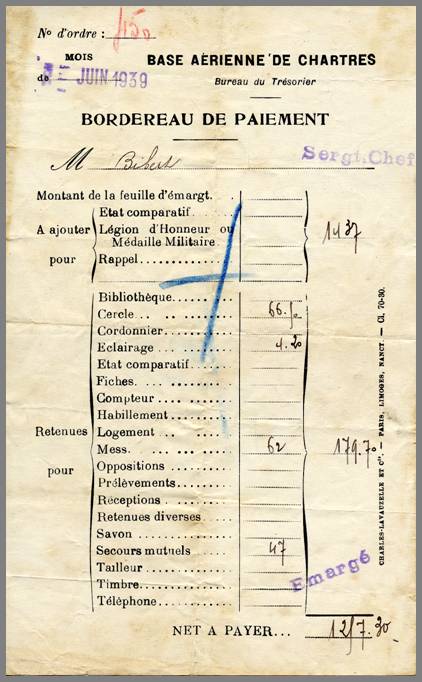 Nº d'ordre : 450
MOIS
de JUIN 1939
BASE AÉRIENNE DE CHARTRES
Bureau du Trésorier
BORDEREAU DE PAIEMENT
M Bibert
Sergt.Chef
Montant de la feuille d'émargt. . .
A ajouter pour
Etat comparatif. . . . . .
Légion d'Honneur ou Médaille Militaire
Rappel. . . . . . . . . . . .
1437
Retenues pour
Bibliothèque. . . . . .
Cercle. . . . . . . . 66.50
Cordonnier. . . . . . .
Eclairage . . . . . . . 4.20
Etat comparatif. . . . .
Fiches. . . . . . . .
Compteur . . . . . . .
Habillement. . . . . . .
Logement . . . . . . .
Mess. . . . . . . . . 62
Oppositions . . . . . . .
Prélèvements. . . . . .
Réceptions . . . . . . .
Retenues diverses . . . .
Savon . . . . . . . . .
Secours mutuels . . . . 47
Tailleur . . . . . . . .
Timbre. . . . . . . . .
Téléphone. . . . . . . .
179.70
Emargé
NET A PAYER... 1257.30
CHARLES-LAVAUZELLE ET Cie. — PARIS, LIMOGES, NANCY. — Cl. 70-30.